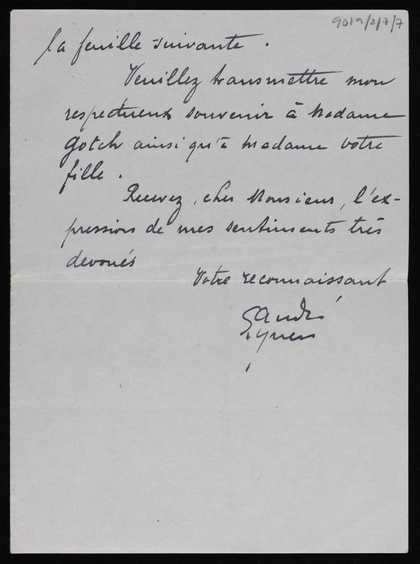 9019/2/7/7
la feuille suivante.
Veuillez transmettre mon
respectueux souvenir à Madame
Gotch ainsi qu'à Madame votre
fille.
Recevez, cher Monsieur, l'ex-
pression de mes sentiments très
devoués
Votre reconnaissant
André